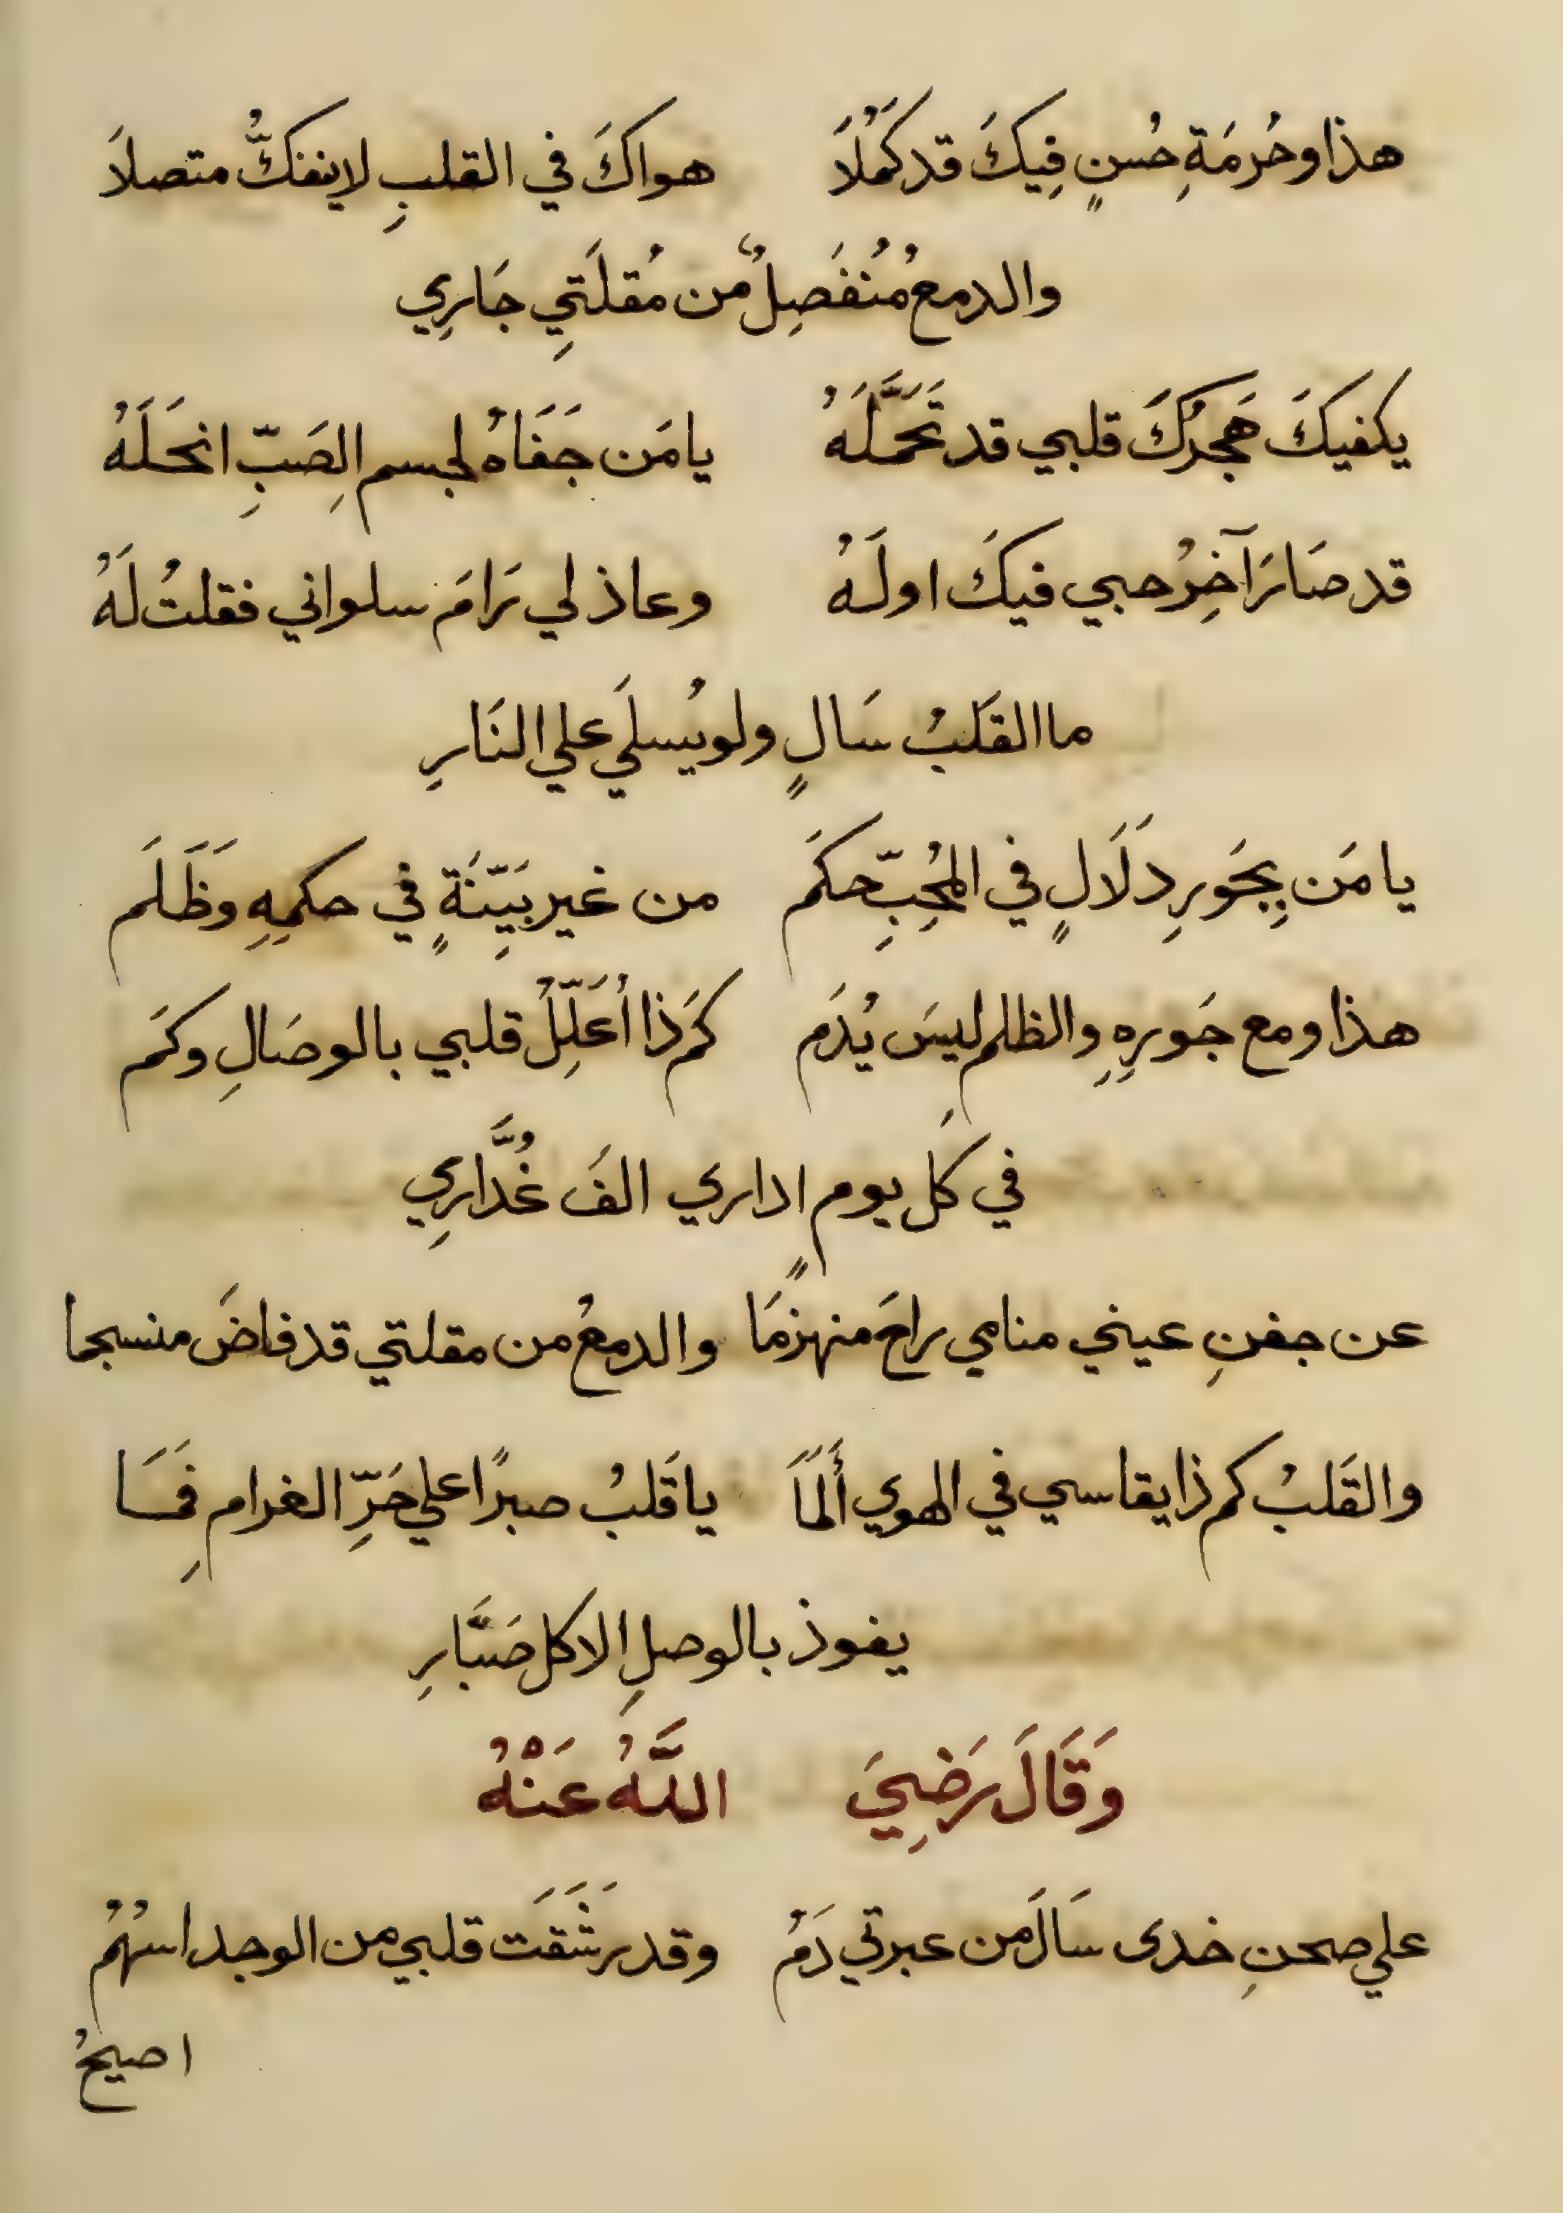 هذا وحُرمَةِ حُسنٍ فِيكَ قد كَمُلَا هواكَ في القلبِ لا ينفكُّ متصلاَ
والدمعُ مُنفَصِلٌ من مُقلَتِي جَارِي
يكفيكَ هَجرُكَ قلبي قد تَحَمَّلَهُ يا مَن جَفَاهُ لجسم الِصَبِّ انحَلَهُ
قد صَارَ آخِرُ حبي فيكَ اولَهُ وعاذلي رَامَ سلواني فقلتُ لَهُ
ما القَلبُ سَالٍ ولو يُسلَي علي النَارِ
يا مَن بِجَورِ دَلَالٍ في المُحِبِّ حكَم من غير بَيِّنَةٍ في حكمِهِ وظَلَم
هذا ومع جَورِهِ والظلم ليسَ يُذَم كَم ذا أُعَلِّلُ قلبي بالوصَالِ وكَم
في كَل يومٍ اداري الفَ غُدَّارِي
عن جفنِ عيني منامي راحَ منهزمَا والدمعُ من مقلتي قد فاضَ منسجما
والقَلبُ كم ذا يقاسي في الهوي أَلَمَاَ يا قَلبُ صبرًا علي حَرِّ الغرام فِمَا
يفوذ بالوصلِ الا كل صَبَّارِ
وَقَالَ رَضِيَ اللَّهُ عَنْهُ
علي صحنِ خدى سَالَ من عبرتي دَمُ وقد رَشَقَت قلبي من الوجد اسهُمُ
اصيحُ